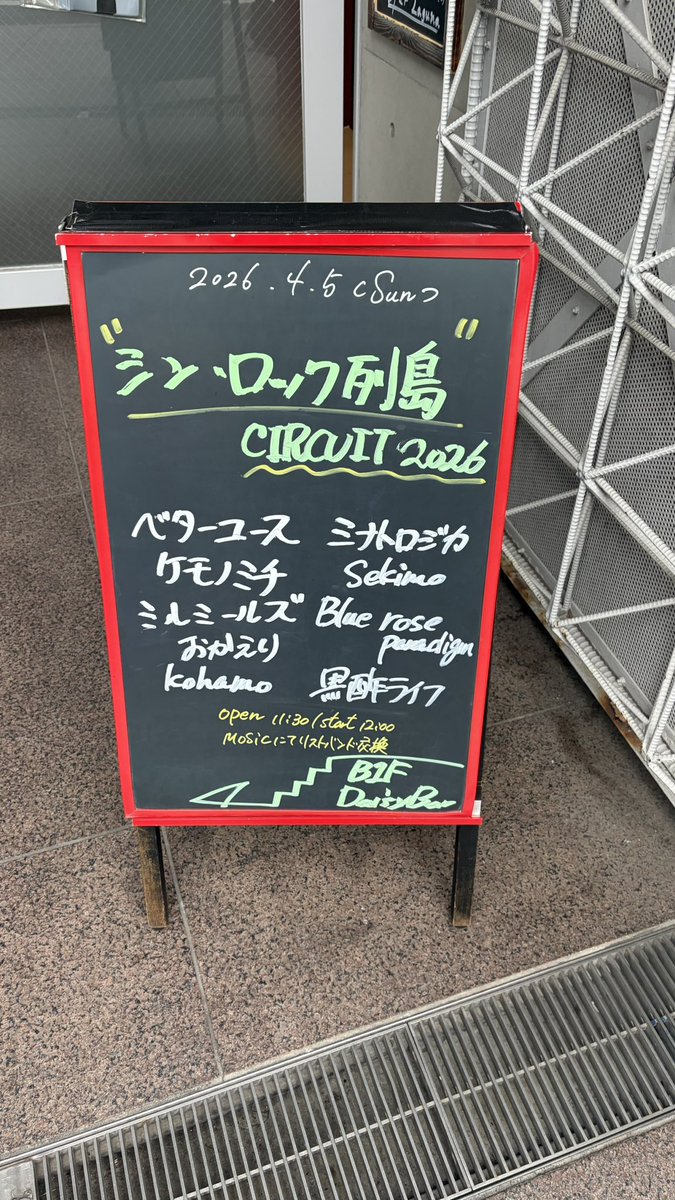 Laguna
2026.4.5 (Sun)
"シン・ロック列島"
CIRCUIT 2026
ベターユース ミナトロジカ
ケモノミチ Sekimo
ミルミールズ Blue rose
paradigm
おかえり
kohamo 黒酢ライフ
open 11:30/start 12:00
MOSiCにてリストバンド交換
B1F
DaisyBar